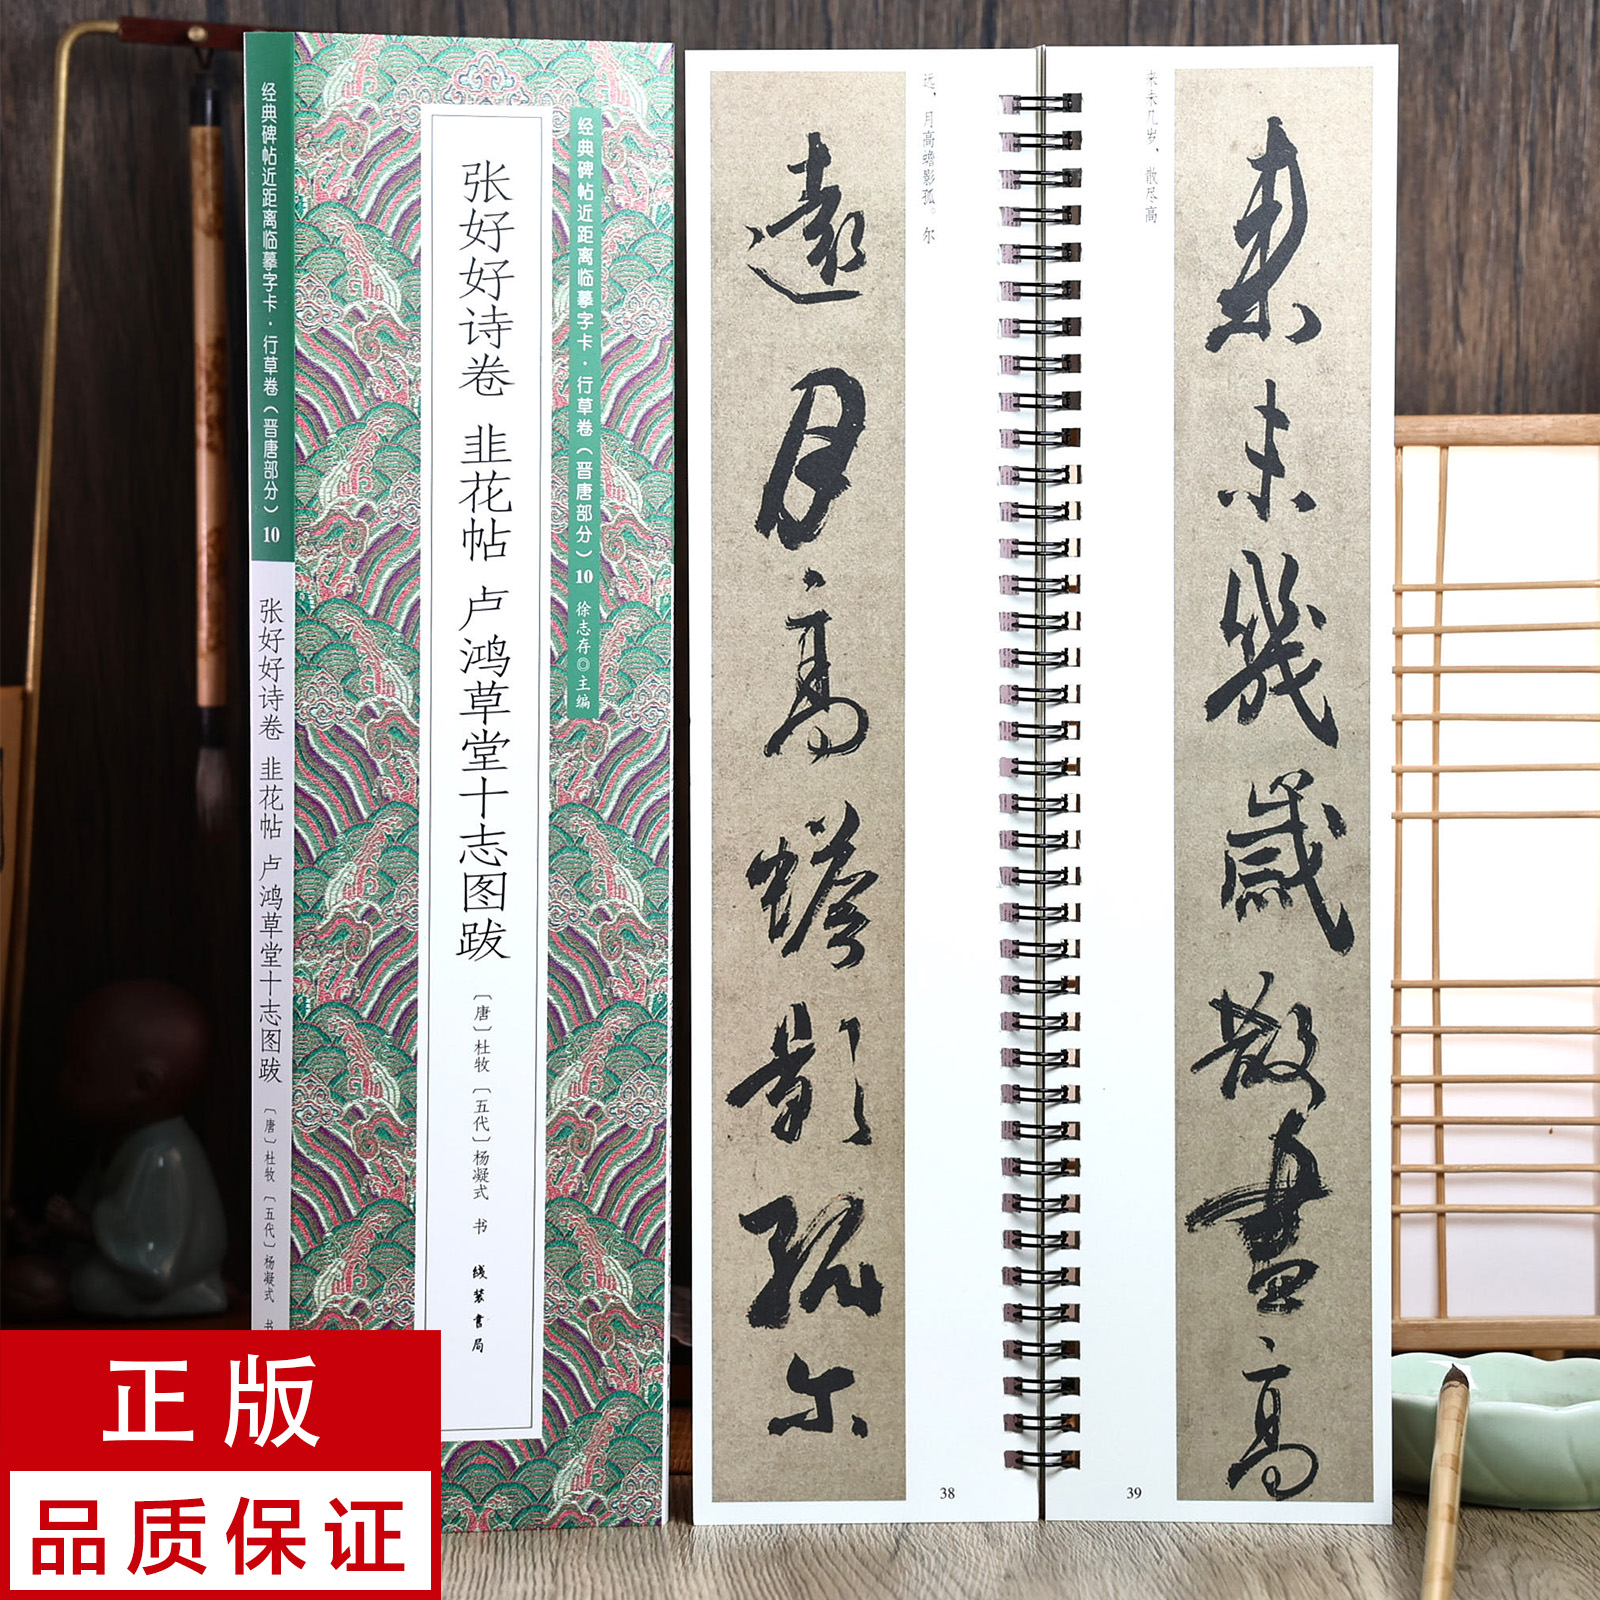 经典碑帖近距离临摹字卡·行草卷（晋唐部分）10
张好好诗卷 韭花帖 卢鸿草堂十志图跋
〔唐〕杜牧 〔五代〕杨凝式 书
张好好诗卷 韭花帖 卢鸿草堂十志图跋
〔唐〕杜牧〔五代〕杨凝式 书
线装书局
经典碑帖近距离临摹字卡·行草卷（晋唐部分）10 徐志存◎主编
遠月高蟾影孤尔
远，月高蟾影孤。尔
38
来未几岁，散尽高
來未幾歲散盡高
39
正版
品质保证